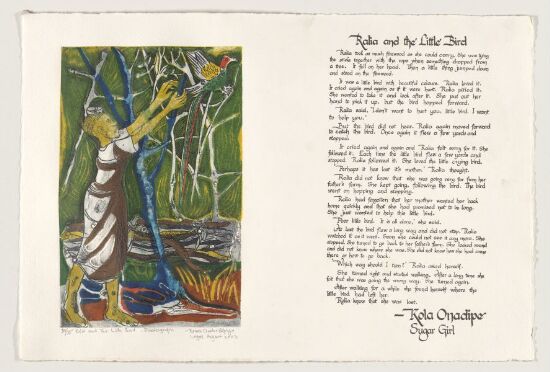 Ralia and the Little Bird
Ralia took as much firewood as she could carry. She was tying
the sticks together with the rope when something dropped from
a tree. It fell on her head. Then a little thing jumped down
and stood on the firewood.
It was a little bird with beautiful colours. Ralia loved it.
It cried again and again as if it were hurt. Ralia pitied it.
She wanted to take it and look after it. She put out her
hand to pick it up, but the bird hopped forward.
"Ralia said, "I don't want to hurt you, little bird. I want
to help you."
But the bird did not hear. Ralia again moved forward
to catch the bird. Once again it flew a few yards and
stopped.
It cried again and again and Ralia felt sorry for it. She
followed it. Each time the little bird flew a few yards and
stopped. Ralia followed it. She loved the little crying bird.
"Perhaps it has lost it's mother," Ralia thought.
Ralia did not know that she was going very far from her
father's farm. She kept going, following the bird. The bird
went on hopping and stopping.
Ralia had forgotten that her mother wanted her back
home quickly and that she had promised not to be long.
She just wanted to help this little bird.
"Poor little bird. It is all alone," she said.
At last the bird flew a long way and did not stop. Ralia
watched it as it went. Soon she could not see it any more. She
stopped. She turned to go back to her father's farm. She looked round
and did not know where she was. She did not know how she had come
there or how to go back.
"Which way should I turn?" Ralia asked herself.
She turned right and started walking. After a long time she
felt that she was going the wrong way. She turned again.
After walking for a while she found herself where the
little bird had left her.
Ralia knew that she was lost.
—Kola Onadipe
Sugar Girl
Ralia and The Little Bird